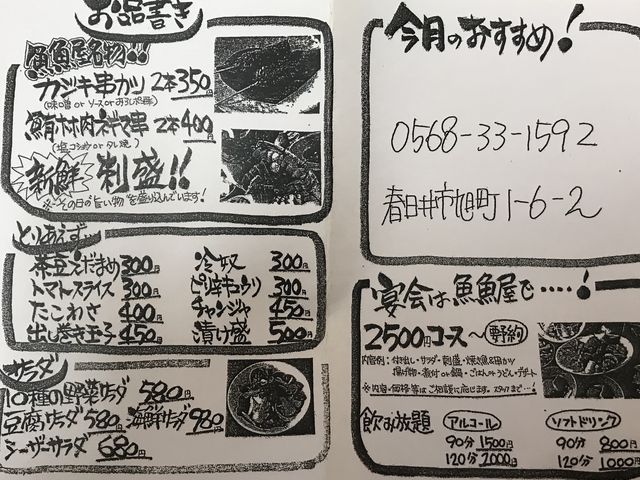 お品書き
魚魚屋名物!!
カジキ串カツ 2本350円
(味噌 or ソース or おろしポン酢)
鮪ホホ肉ネギマ串 2本400円
(塩コショウ or タレ焼)
新鮮 刺盛!!
※その日の"旨い物"を盛り込んでいます!
とりあえず…
茶豆えだまめ 300円
トマトスライス 300円
たこわさ 400円
出し巻き玉子 450円
冷奴 300円
ピリ辛キュウリ 300円
チャンジャ 450円
漬け盛 500円
サラダ
10種の野菜サラダ 580円
豆腐サラダ 580円 海鮮サラダ 980円
シーザーサラダ 680円
今月のおすすめ!
0568-33-1592
春日井市旭町1-6-2
宴会は魚魚屋で・・・・・!
2500円コース〜 要予約
内容例:付き出し・サラダ・刺盛・焼き魚
揚げ物・煮付 or 鍋・ごはん or うどん・デザート
※内容・価格等はご相談に応じます。スタッフまで…!
飲み放題
アルコール
90分 1500円
120分 2000円
ソフトドリンク
90分 800円
120分 1000円